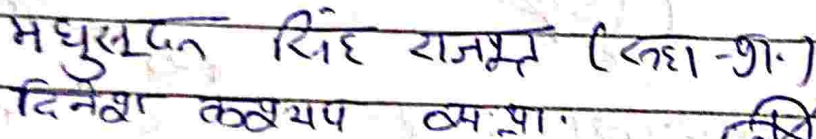 मधुसूदन सिंह राजपूत (सहा-शि.)
दिनेश कश्यप